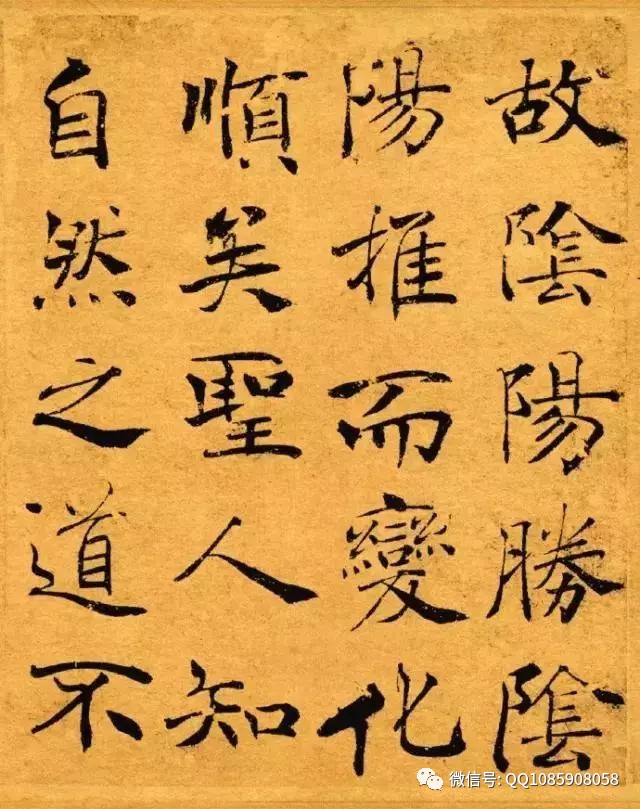 故陰陽勝陰
陽推而變化
順矣聖人知
自然之道不
微信号: QQ1085908058